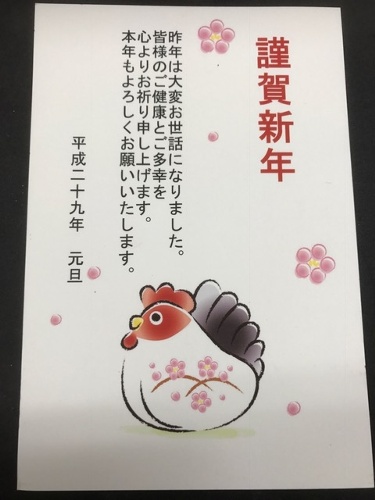 謹賀新年
昨年は大変お世話になりました。
皆様のご健康とご多幸を
心よりお祈り申し上げます。
本年もよろしくお願いいたします。
平成二十九年　元旦